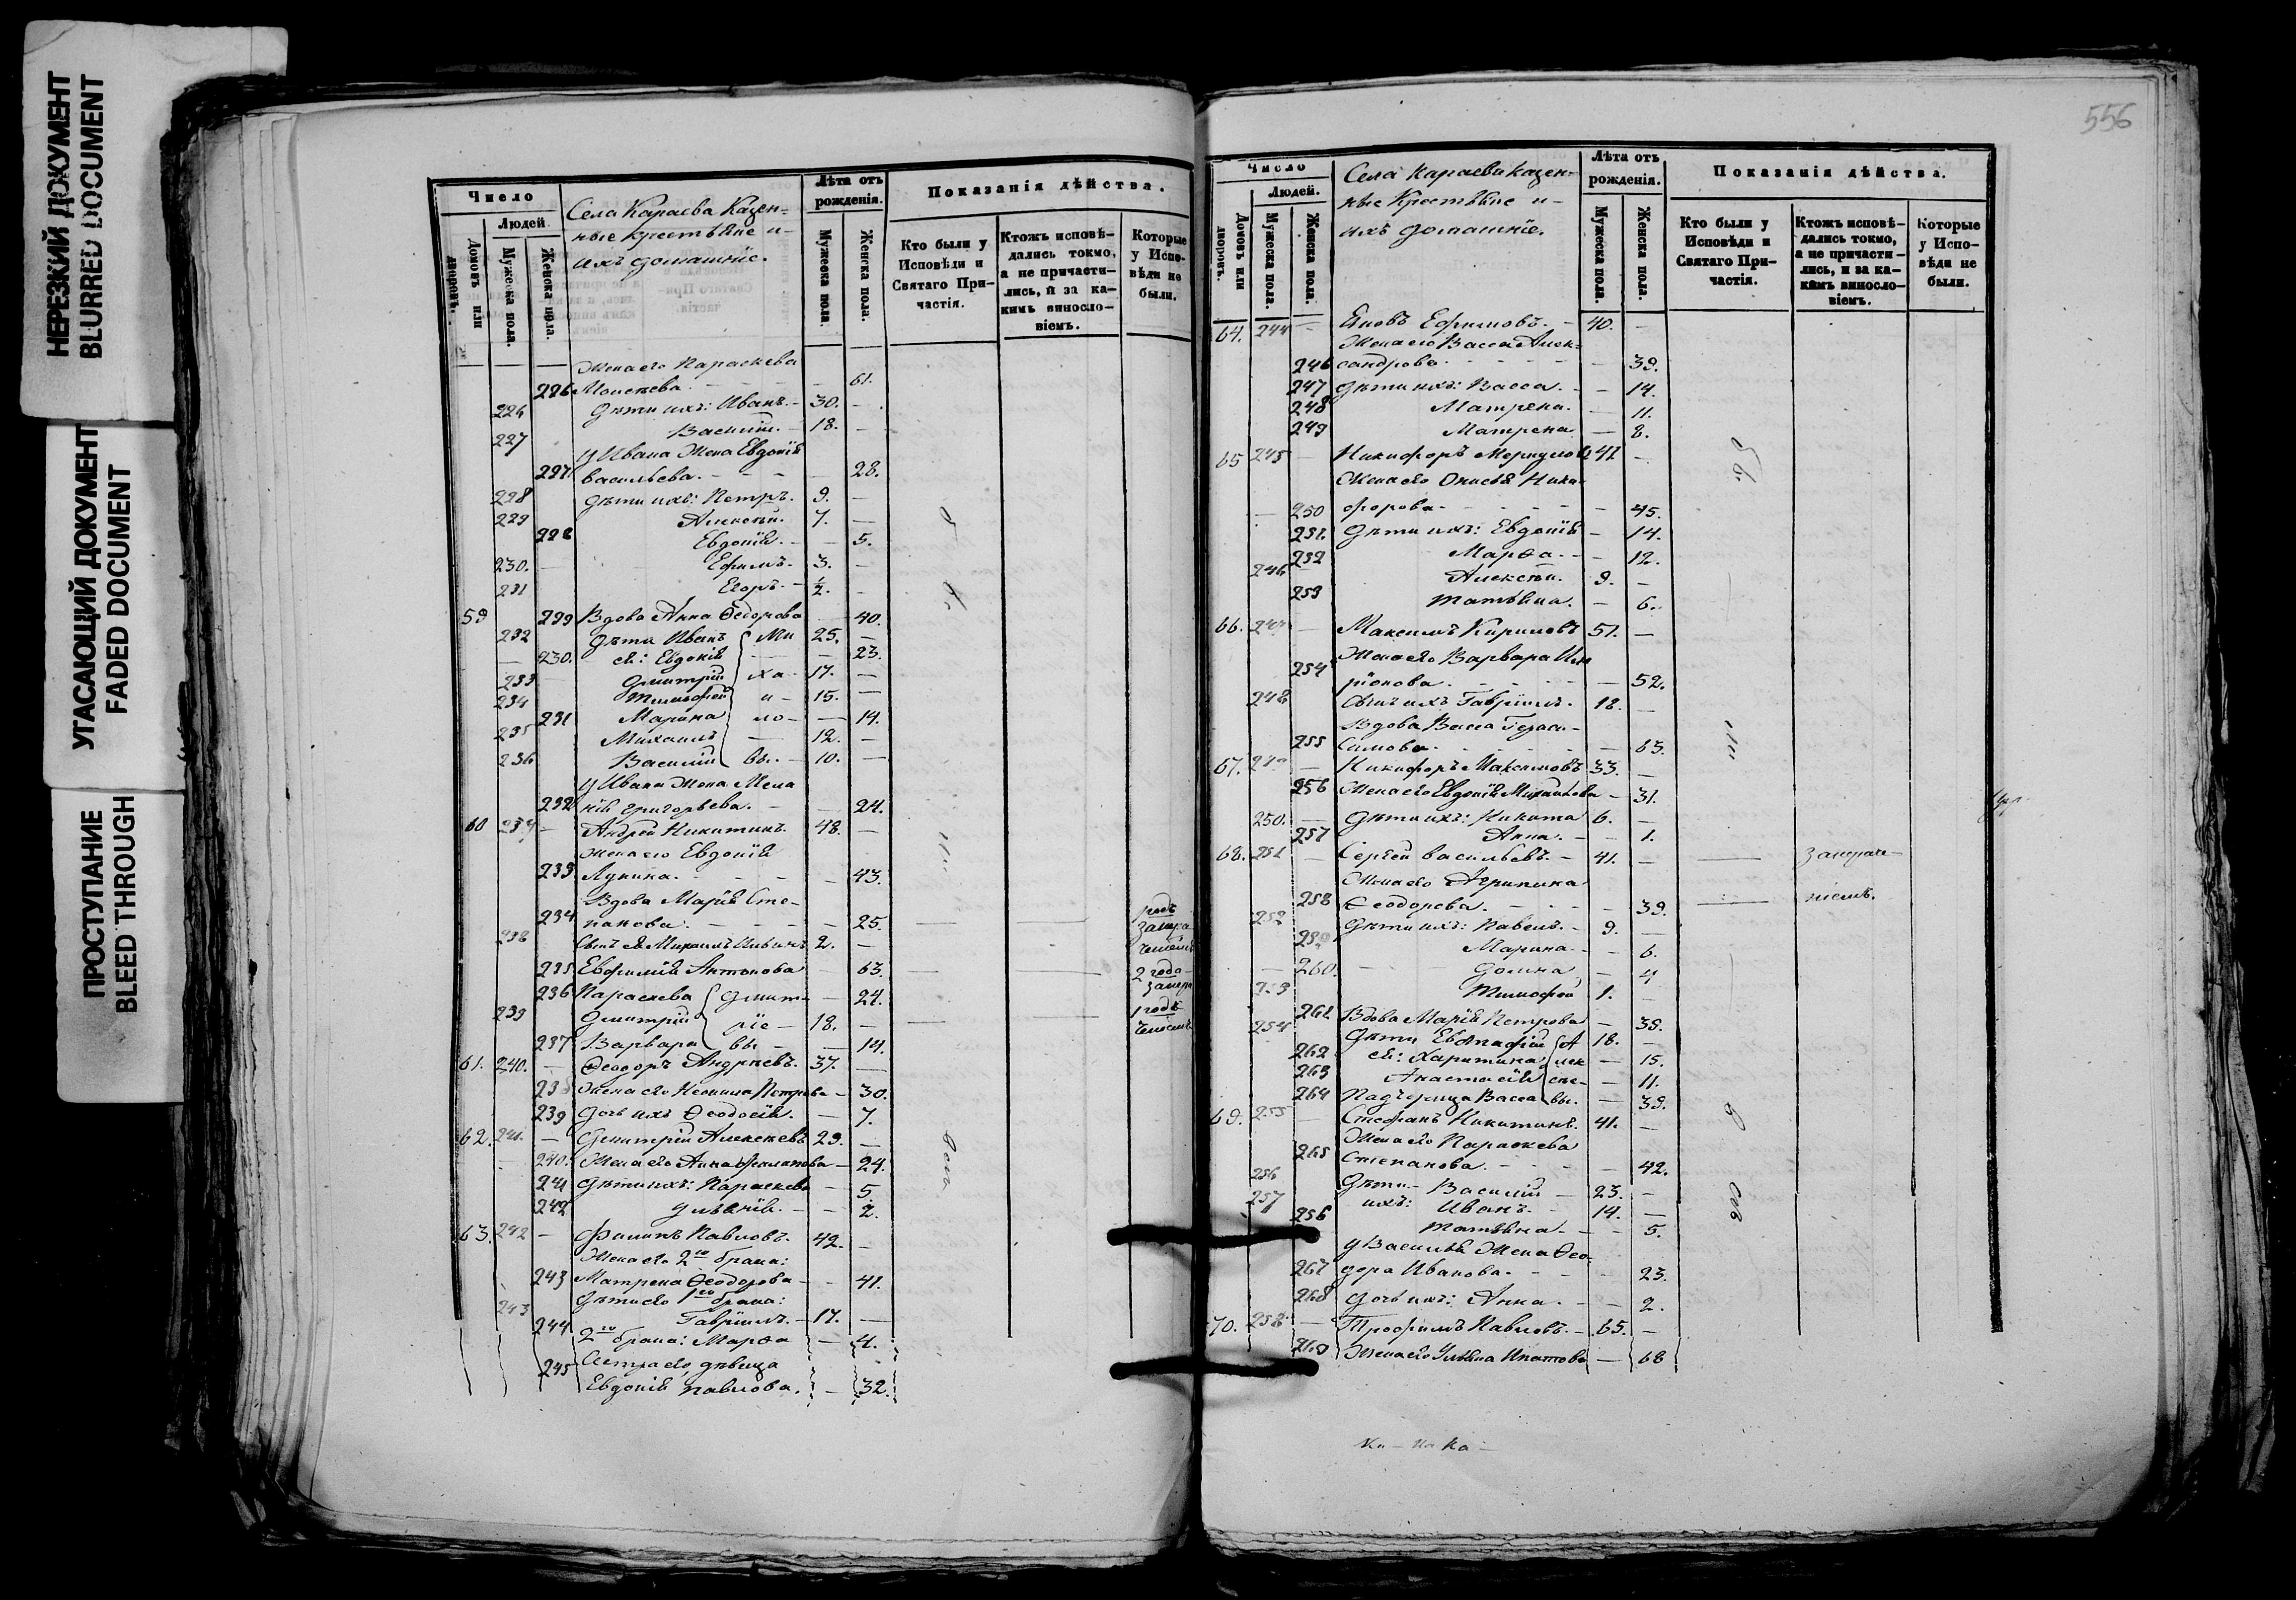 НЕРЕЗКИЙ ДОКУМЕНТ
BLURRED DOCUMENT
УГАСАЮЩИЙ ДОКУМЕНТ
FADED DOCUMENT
ПРОСТУПАНИЕ
BLEED THROUGH
Число
Людей
Домовъ или дворовъ.
Мужеска пола.
Женска пола.
Села Караева Казен-
ные Крестьяне и
ихъ домашніе.
Лѣта отъ рожденія.
Мужеска пола.
Женска пола.
Показанія дѣйства.
Кто были у Исповѣди и Святаго При-частія.
Ктожъ исповѣ-дались токмо, а не причасти-лись, и за ка-кимъ виносло-віемъ.
Которые у Испо-вѣди не были.
Жена его Параскева
226 Моисеева. - 61.
226 Дѣти ихъ: Иванъ. - 30. -
227 Василий. - 18. -
у Ивана Жена Евдокія
227 Васильева. - 28.
228 Дѣти ихъ: Петръ. 9. -
229 Алексѣй. 7. -
228 Евдокія. - 5.
230. Ефимъ. 3. -
231 Егоръ. - ½. -
59 229 Вдова Анна Ѳедорова 40.
232 Дѣти Иванъ Ми 25. -
230. ея: Евдокія - 23.
233 Дмитрій ха- 17. -
234 Тимофей и- 15. -
231 Марина ло- - 14.
235 Михаилъ - 12. -
236 Василій вы. - 10. -
у Ивана Жена Мела
232 нія Григорьева. - 24.
60 237 - Андрей Никитинъ. 48. -
Жена его Евдокія
233 Лукина. - 43.
Вдова Марія Сте-
234 панова. - 25.
238 Сынъ ея Михаилъ Ивановъ 2. -
235 Евфимія Антонова 63.
2 года
236 Параскева Дмит- - 24.
239 Дмитрій ріе- 18. -
1 годъ
237 Варвара вы - 14.
61. 240. - Ѳеодоръ Андреевъ. 37. -
238 Жена его Неонила Петрова - 30.
239 Дочь ихъ Ѳеодосія. - 7.
62. 241. - Дмитрій Алексѣевъ 29. -
240. Жена его Анна Филипова - 24.
241 Дѣти ихъ: Параскева - 5.
242 Ульянія. - 2.
63. 242 - Филипъ Павловъ. 42. -
Жена его 2го брака:
243 Матрена Ѳеодорова - 41.
Дѣти его 1го брака:
243 Гавріилъ. - 17. -
244 2го брака: Марѳа - 4.
245 Сестра его, дѣвица
Евдокія Павлова. - 32.
556
Число
Людей.
Домовъ или дворовъ.
Мужеска пола.
Женска пола.
Села Караева Казен-
ные Крестьяне и-
ихъ домашніе.
Лѣта отъ рожденія.
Мужеска пола.
Женска пола.
Показанія дѣйства.
Кто были у Исповѣди и Святаго При-частія.
Ктожъ исповѣ-дались токмо, а не причасти-лись, и за ка-кимъ виносло-віемъ.
Которые у Испо-вѣди не были.
64. 244 - Яковъ Ефимовъ. - 40. -
Жена его Васса Алек-
246 сандрова. - 39.
247 Дѣти ихъ: Васса. - 14.
248 Матрена. - 11.
249 Матрена - 8.
65 245 - Никифоръ 41. -
Жена его Ники-
250 форова - 45.
251. Дѣти ихъ: Евдокія - 14.
252 Марѳа. - 12.
246 Алексѣй. 9. -
253 Татьяна. - 6.
66. 247 - Максимъ Кириловъ 51. -
Жена его Варвара
254 ріонова. - 52.
248 Сынъ ихъ Гавріилъ. 18. -
Вдова Васса Гераси-
255 симова. - 63.
67. 249 - Никифоръ Максимовъ 33. -
256 Жена его Евдокія Михайлова - 31.
250. - Дѣти ихъ: Никита 6. -
257 Анна. - 1.
68. 251 - Сергѣй Васильевъ. - 41. -
Жена его Агрипина
258 Ѳеодорова. - 39.
252 Дѣти ихъ: Павелъ. - 9. -
259 Марина. - 6.
260. - Домна - 4
253 Тимофей 1. -
261 Вдова Марія Петрова - 39.
254 Дѣти Евстафій А 18. -
262 ея: Харитина лек - 15.
263 Анастасія сѣе- - 11.
264 Падчерица Васса вы. - 39.
69. 255 - Стефанъ Никитинъ. 41. -
Жена его Параскева
265 Степанова. - 42.
256 Дѣти- Василій - 23. -
257 ихъ: Иванъ. 14. -
256 Татьяна. - 5.
у Василья Жена Ѳео-
267 дора Иванова. - 23.
268 Дочь ихъ: Анна. - 2.
70. 258 - Трофимъ Павловъ. - 65. -
269 Жена его Ульяна Ипатова - 68